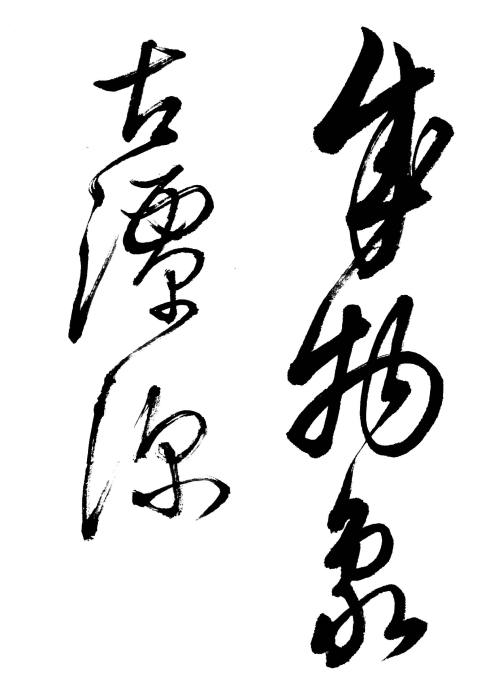 物象
古潭深